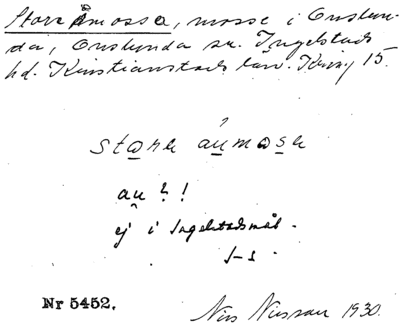 Stora Åmossa, mosse i Onslun-
da, Onslunda sn. Ingelstads
hd. Kristianstads län. Kony 15.
stora åumosa
au ? !
ej i Ingelstadsmål.
Nr 5452.
Nils Nilsson 1930.